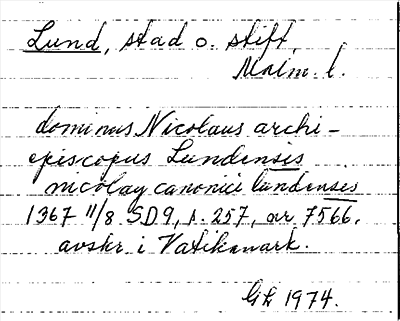 Lund, stad o. stift,
Malm. l.
dominus Nicolaus archi-
episcopus Lundensis
nicolay canonici lundenses
1367 11/8 SD9, s. 257, nr 7566.
avskr. i Vatikanark.
GL 1974.